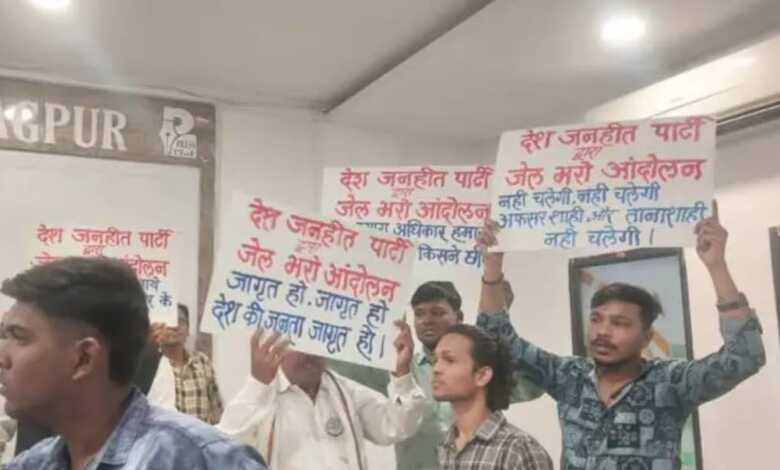 AGPUR
PRESS
CLUB
देश जनहीत पार्टी
द्वारा
जेल भरो आंदोलन
नही चलेगी. नही चलेगी
अफसर शाही और तानाशाही
नही चलेगी।
देश जनहीत पार्टी
द्वारा
जेल भरो आंदोलन
अधिकार हमा
किसने छी
देश जनहीत पार्टी
द्वारा
जेल भरो आंदोलन
जागृत हो. जागृत हो
देश की जनता जागृत हो।
देश जनहीत पार्टी
द्वारा
जेल भरो आंदोलन
के